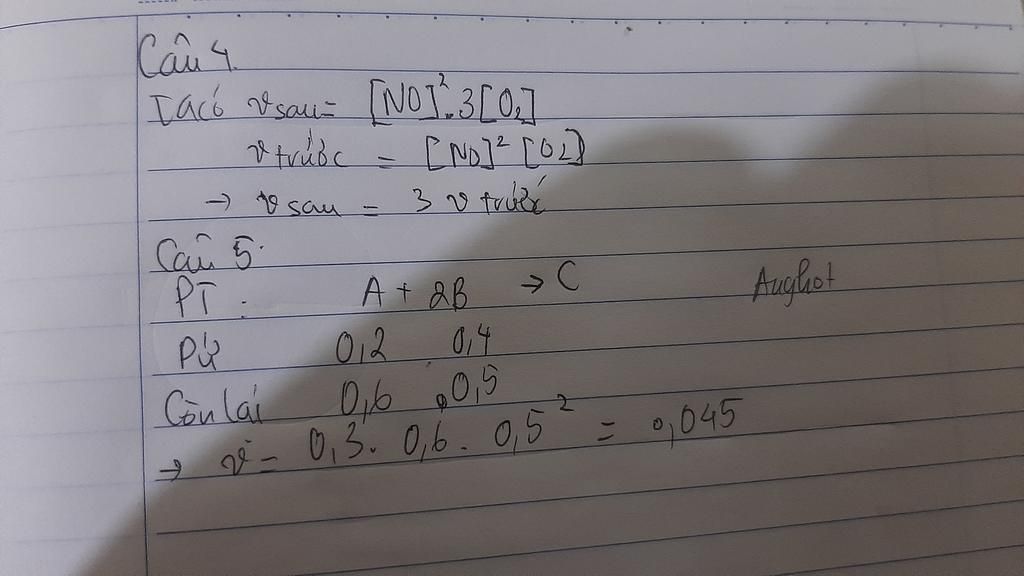 Câu 4.
Ta có v sau = [NO]².3[O₂]
v trước = [NO]² [O₂]
→ v sau = 3 v trước
Câu 5.
PT : A + 2B → C
Aughot
PƯ 0,2 0,4
Còn lại 0,6 0,5
→ v = 0,3. 0,6. 0,5² = 0,045